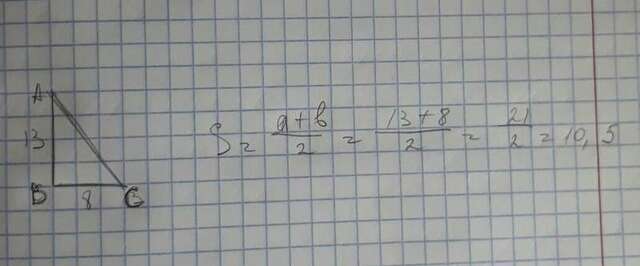 A
13
B
8
C
S = a+b/2 = 13+8/2 = 21/2 = 10,5